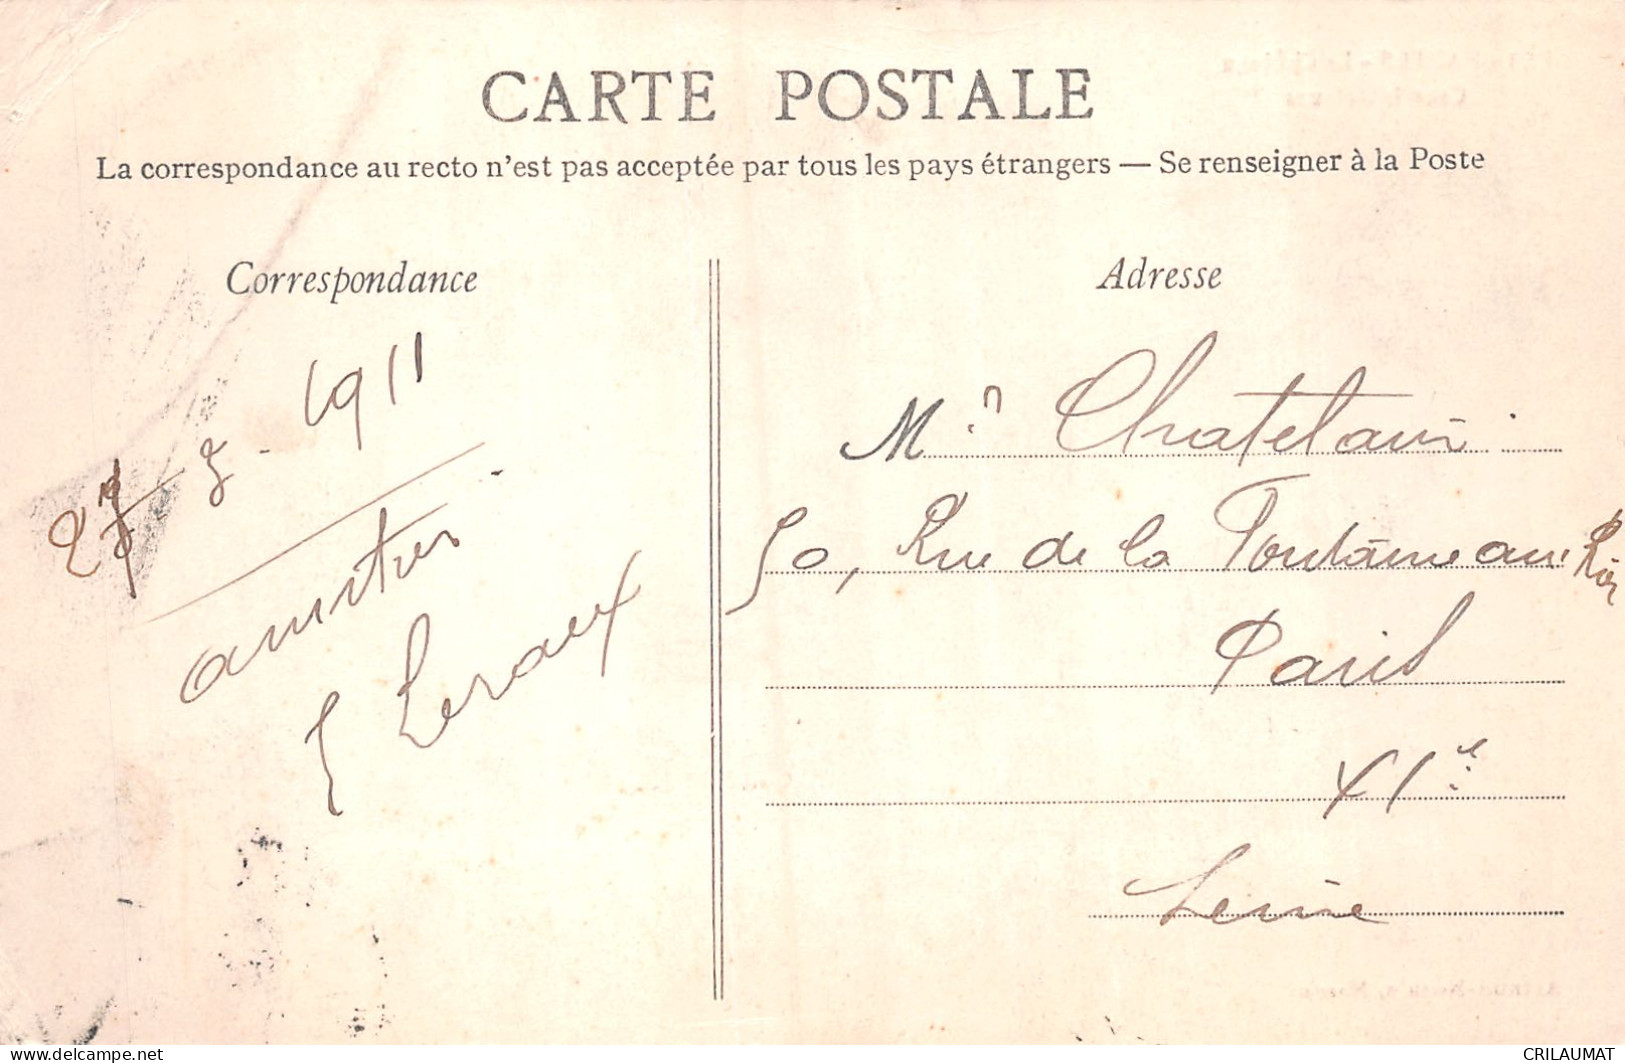 CARTE POSTALE
La correspondance au recto n'est pas acceptée par tous les pays étrangers — Se renseigner à la Poste
Correspondance
Adresse
27 - 5 - 1911
amitiés
E Leroux
Mr Chatelain
50, Rue de la Fontaine au Roi
Paris
XIe
Seine
CRILAUMAT